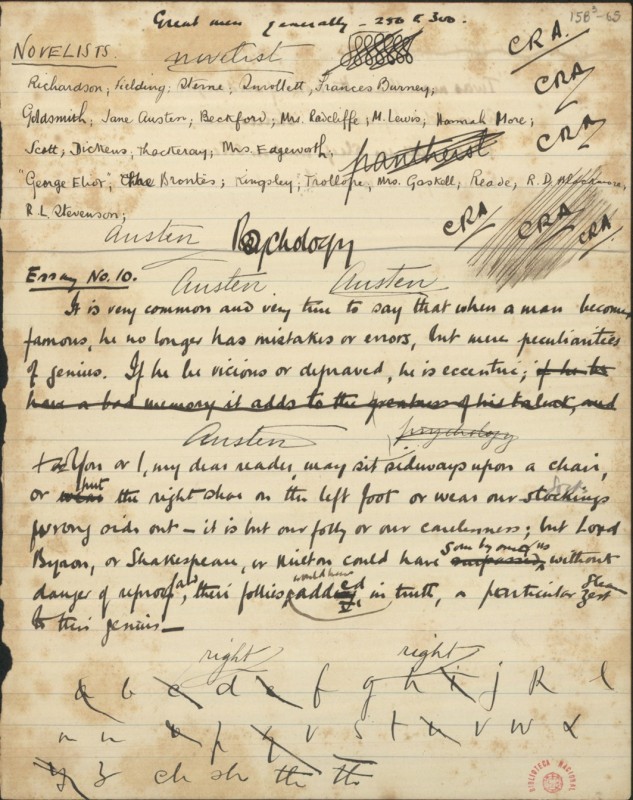 Great men generally - 250 to 300.
158³-65
NOVELISTS. novelist
CRA.
Richardson; Fielding; Sterne; Smollett, Frances Burney,
CRA
Goldsmith; Jane Austen; Beckford; Mrs. Radcliffe; M. Lewis; Hannah More;
CRA
Scott; Dickens; Thackeray; Mrs. Edgeworth, pantheist
"George Eliot", the Brontes; Kingsley; Trollope; Mrs. Gaskell; Reade, R. D. Blackmore,
R. L. Stevenson;
CRA CRA CRA
Austen Psychology
Essay No. 10. Austen Austen
It is very common and very true to say that when a man becomes
famous, he no longer has mistakes or errors, but mere peculiarities
of genius. If he be vicious or depraved, he is eccentric; if he
have a bad memory it adds to the greatness of his talent, and
Austen psychology
You or I, my dear reader, may sit sideways upon a chair,
or put the right shoe on the left foot or wear our stockings
wrong side out — it is but our folly or our carelessness; but Lord
Byron, or Shakespeare, or Milton could have without
danger of reproof, their follies would have added in truth, a particular zest
to their genius —
right right
a b c d e f g h i j k l
m n o p q r s t u v w x
y z ch sh th th
BIBLIOTECA NACIONAL